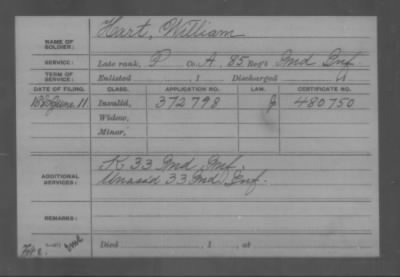 Hart, William
NAME OF SOLDIER:
SERVICE: Late rank, P Co. A, 85 Reg't Ind Inf.
TERM OF SERVICE: Enlisted , 1 Discharged , 1
DATE OF FILING. CLASS. APPLICATION NO. LAW. CERTIFICATE NO.
June 11 Invalid, 372798 G 480750
Widow,
Minor,
K 33 Ind Inf.
ADDITIONAL SERVICES: Unas'd 33 Ind. Inf.
REMARKS:
Died , 1 , at